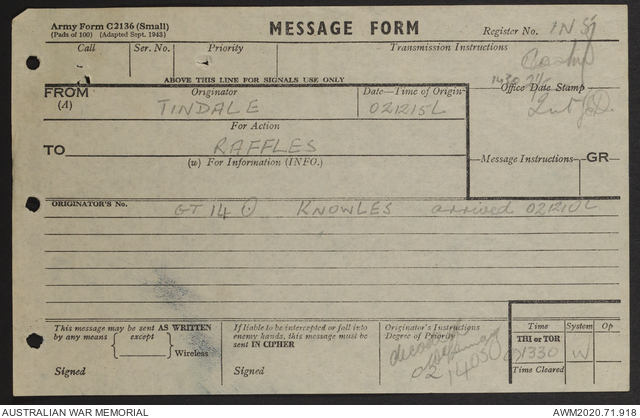 Army Form C2136 (Small)
(Pads of 100) (Adapted Sept. 1943)
MESSAGE FORM
Register No. IN 51
Call Ser. No. Priority Transmission Instructions
ABOVE THIS LINE FOR SIGNALS USE ONLY
FROM
(A)
Originator
TINDALE
Date—Time of Origin
021215L
Office Date Stamp
For Action
TO
RAFFLES
(w) For Information (INFO.)
Message Instructions GR
ORIGINATOR'S No.
GT 14 KNOWLES arrived 021210L
This message may be sent AS WRITTEN
by any means (except
Wireless
Signed
If liable to be intercepted or fall into
enemy hands, this message must be
sent IN CIPHER
Signed
Originator's Instructions
Degree of Priority
021405
Time System Op
THI or TOR
1330 W
Time Cleared
AUSTRALIAN WAR MEMORIAL
AWM2020.71.918